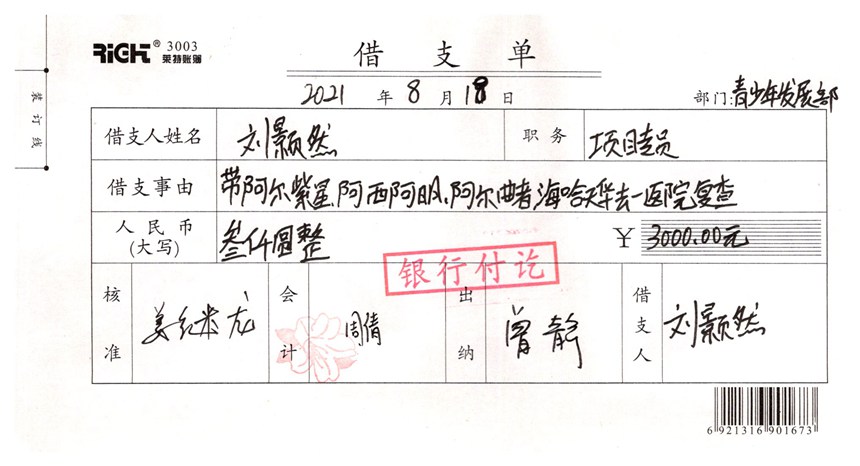 RiGHT® 3003
莱特账簿
借支单
2021 年 8 月 18 日 部门:青少年发展部
装订线
借支人姓名 刘颢然 职务 项目专员
借支事由 带阿尔紫星、阿西阿呷、阿尔曲者、海哈 去一医院复查
人民币(大写) 叁仟圆整 ¥ 3000.00元
银行付讫
核准 会计 周倩 出纳 曾静 借支人 刘颢然
6 921316 901673